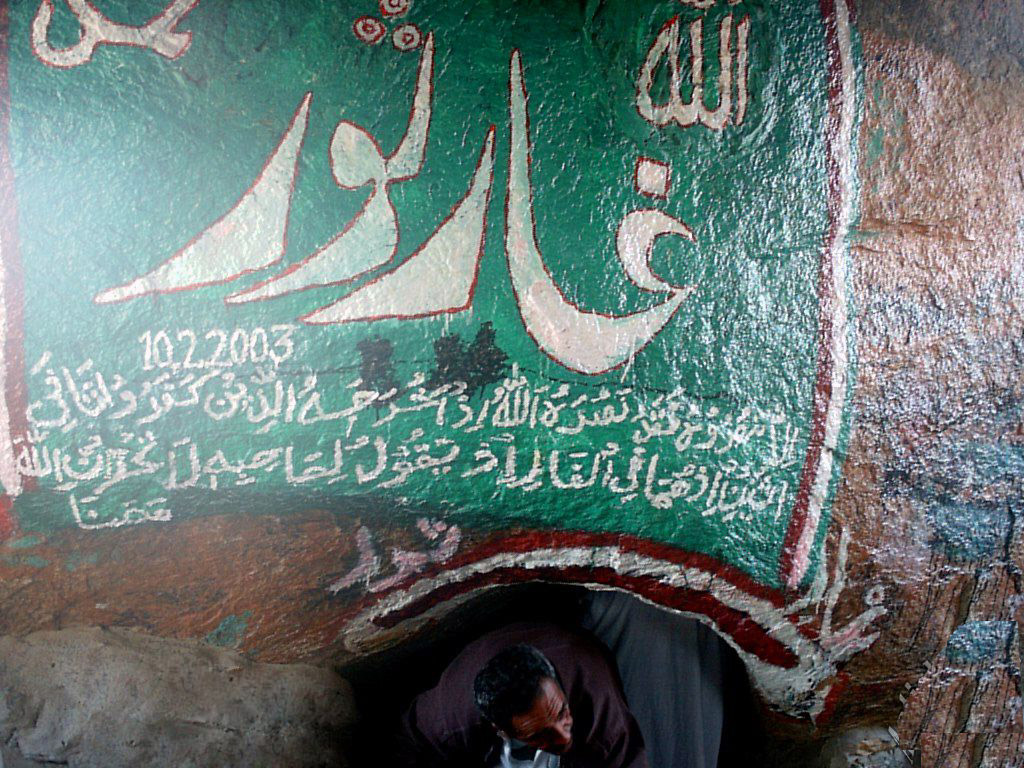 الله
غار ثور
10.2.2003
إلا تنصروه فقد نصره الله إذ أخرجه الذين كفروا ثاني
اثنين إذ هما في الغار إذ يقول لصاحبه لا تحزن إن الله
معنا
ثور